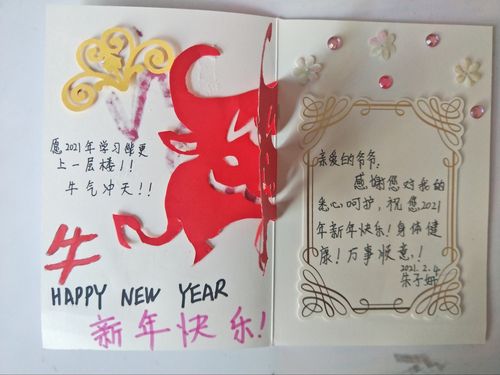 愿2021年学习能更
上一层楼!!
牛气冲天!!
牛
HAPPY NEW YEAR
新年快乐!
亲爱的爷爷:
感谢您对我的
悉心呵护,祝您2021
年新年快乐!身体健
康!万事顺意!
2021.2.4
朱子妍